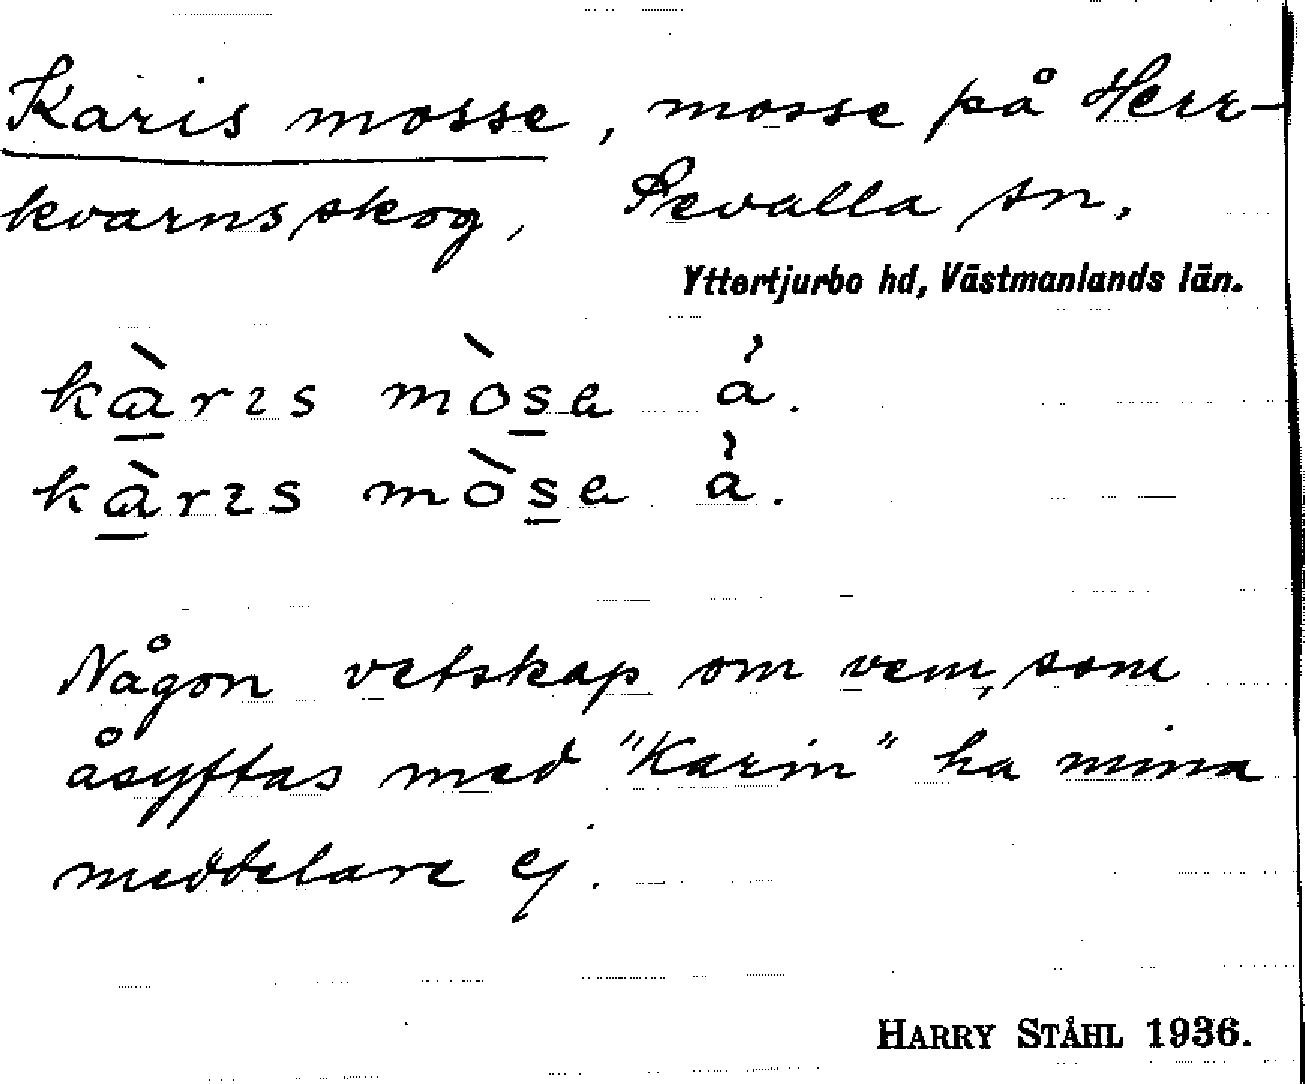 Karis mosse, mosse på Herr-
kvarnsskog, Sevalla sn,
Yttertjurbo hd, Västmanlands län.
kàrɩs mòsa á.
kàrɩs mòsa á.
Någon vetskap om vem, som
åsyftas med "Karin" ha mina
meddelare ej.
HARRY STÅHL 1936.